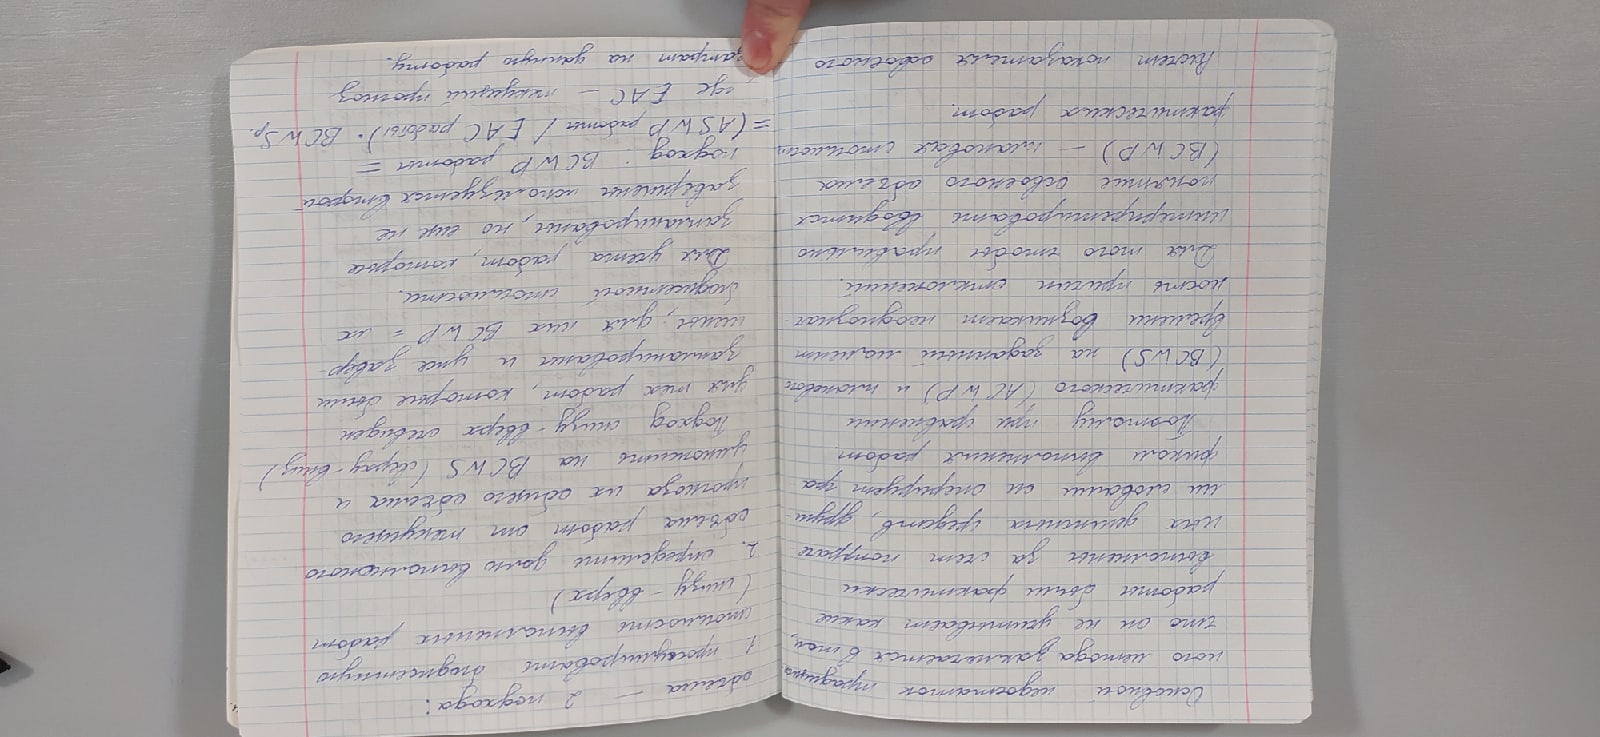 Основной недостаток традицио
ного метода заключается в том,
что он не учитывает какие
работы были фактически
выполнены за счет потраче
нных денежных средств, други-
ми словами он оперирует гра
фиком выполнения работ.
Поэтому при сравнении
фактического (ACWP) и планового
(BCWS) на заданный момент
времени возникает неоднознач-
ность причин отклонений.
Для того чтобы правильно
интерпретировать вводится
понятие освоеного объема
(BCWP) — плановая стоимость
фактических работ.
Расчет показателя освоеного
объема — 2 подхода:
1. просумировать бюджетную
стоимость выполненых работ
(снизу-вверх)
2. определить долю выполноного
объема работ от текущего
прогноза их общего объема и
умножить на BCWS (сверху-вниз)
Подход снизу-вверх очевиден
для тех работ, которые были
запланированы и уже завер-
шены, для них BCWP = их
бюджетной стоимости.
Для учета работ, которые
запланированы, но еще не
завершены используется второй
подход: BCWP работы =
=(ASWP работы / EAC работы)· BCWSр.
где EAC — текущий прогноз
затрат на данную работу.